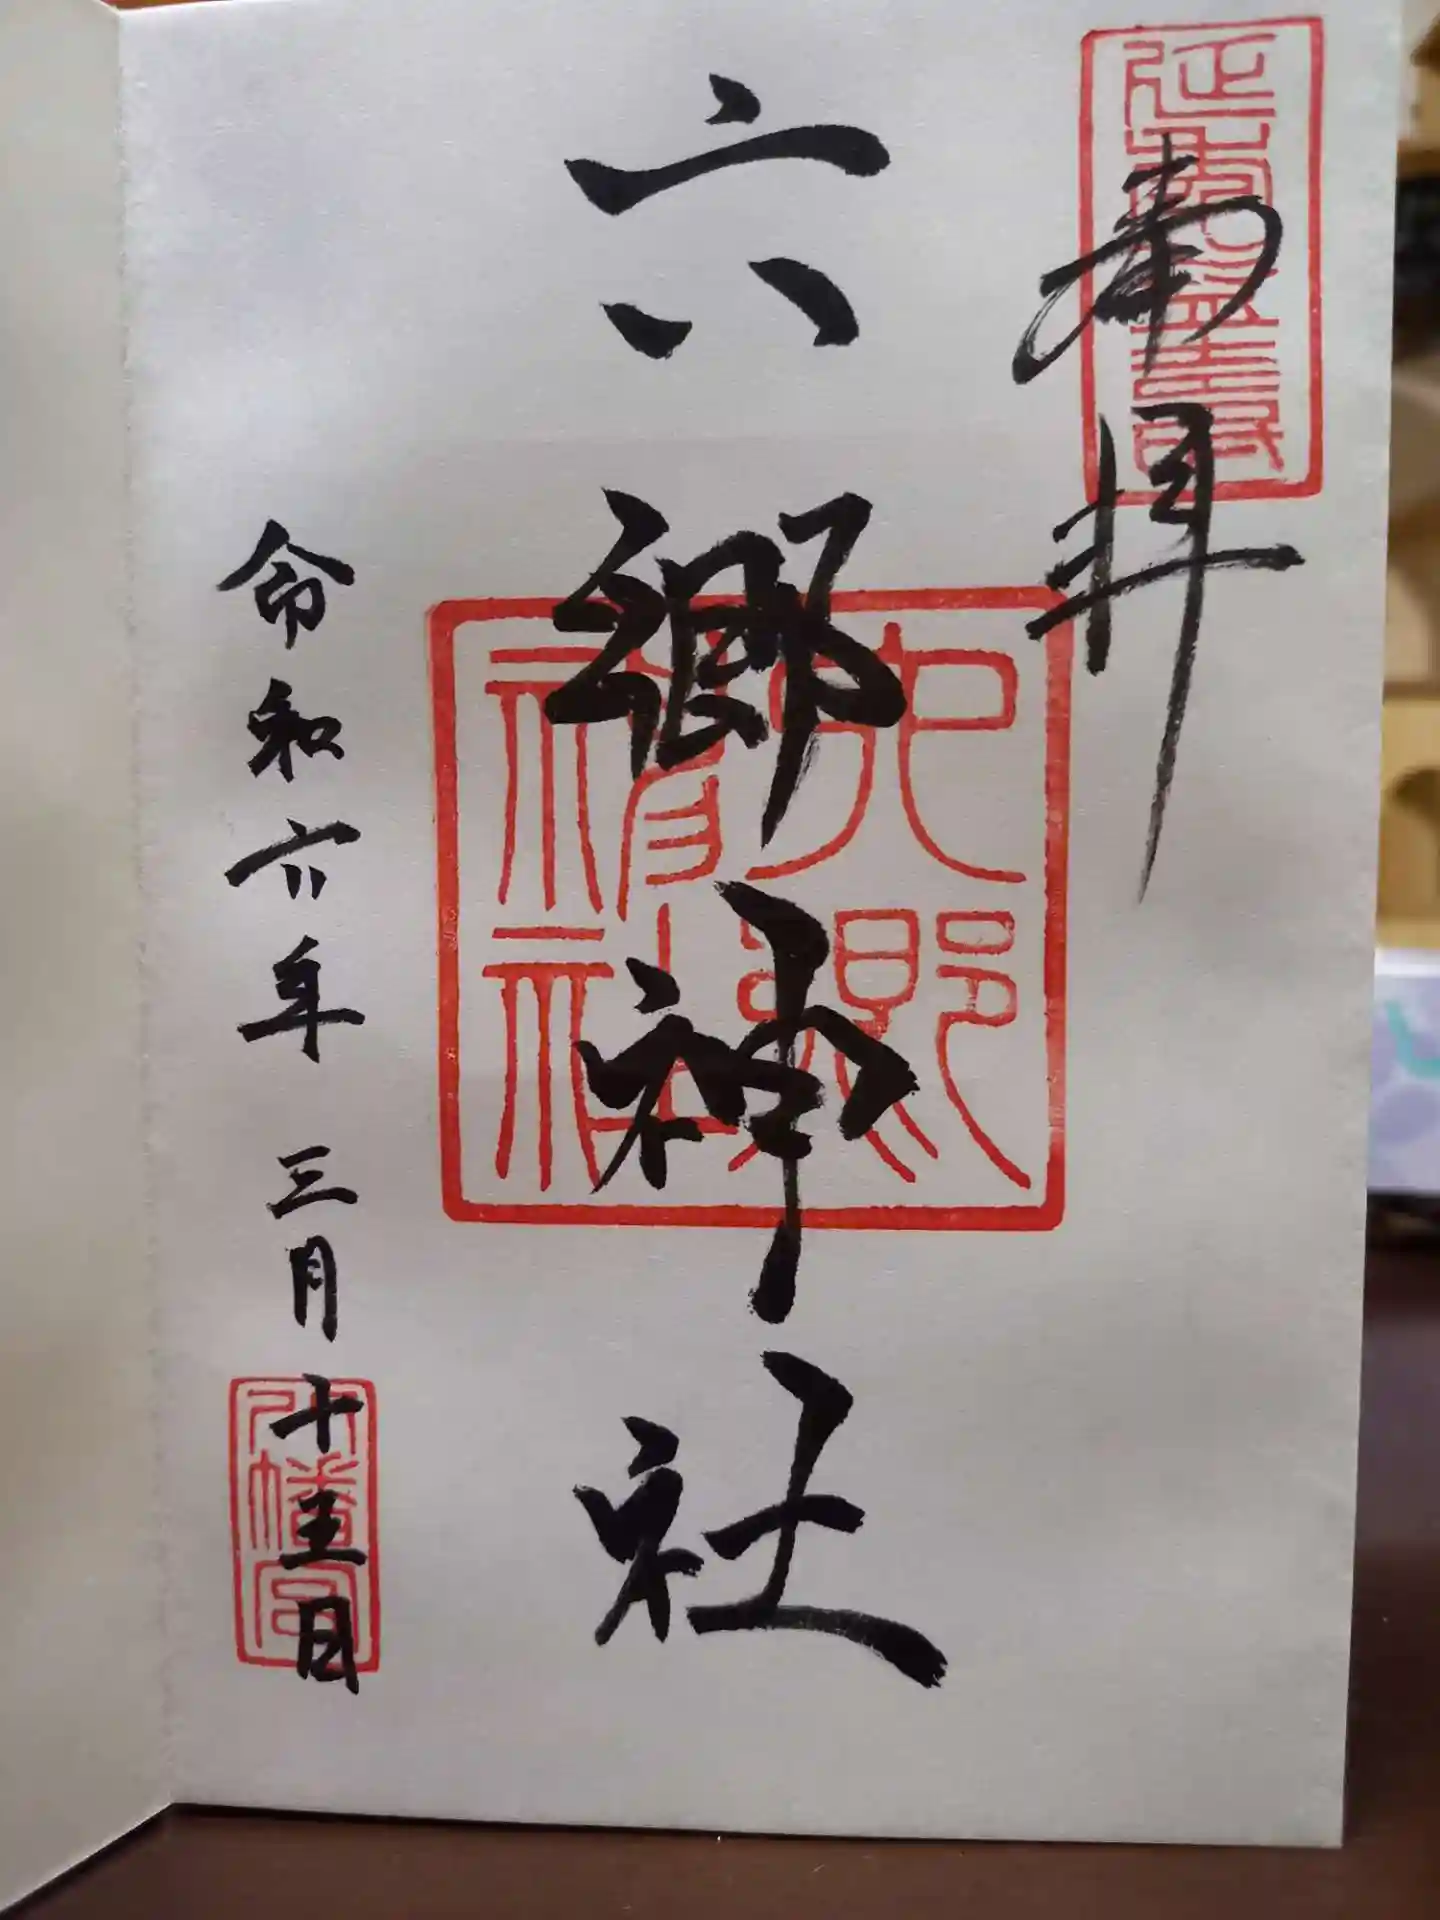 奉拝
六郷神社
六郷神社
令和六年三月十五日
八幡宮